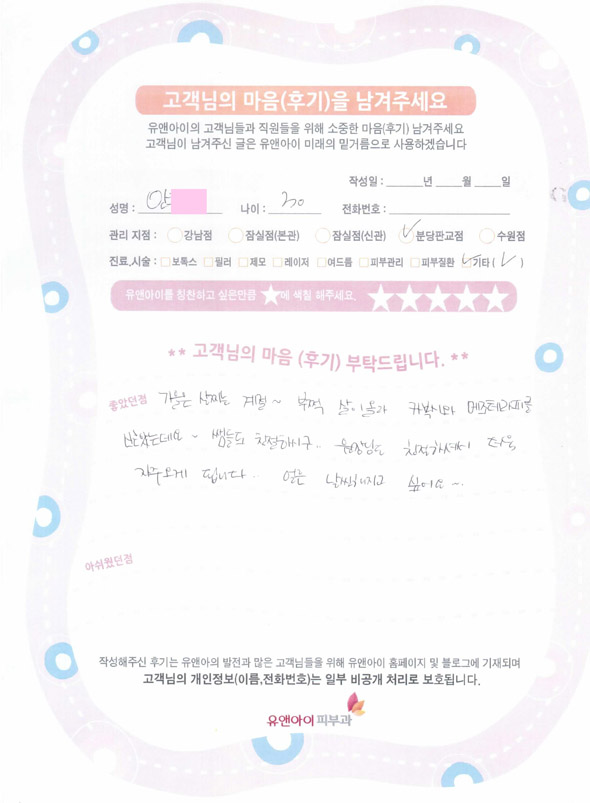 고객님의 마음(후기)을 남겨주세요
유앤아이의 고객님들과 직원들을 위해 소중한 마음(후기) 남겨주세요
고객님이 남겨주신 글은 유앤아이 미래의 밑거름으로 사용하겠습니다
작성일 : ______년 ____월 ____일
성명 : 안 나이 : 30 전화번호 :
관리 지점 : 강남점 잠실점(본관) 잠실점(신관) 분당판교점 수원점
진료,시술 : 보톡스 필러 제모 레이저 여드름 피부관리 피부질환 기타 ( )
유앤아이를 칭찬하고 싶은만큼 ★에 색칠 해주세요. ★★★★★
** 고객님의 마음 (후기) 부탁드립니다. **
좋았던점 가을은 살찌는 계절~ 부쩍 살이올라 카복시와 메조테라피를
받았는데요~ 쌤들도 친절하시구.. 원장님도 친절하셔서
자주오게 됩니다.. 얼른 날씬해지고 싶어요~.
아쉬웠던점
작성해주신 후기는 유앤아의 발전과 많은 고객님들을 위해 유앤아이 홈페이지 및 블로그에 기재되며
고객님의 개인정보(이름,전화번호)는 일부 비공개 처리로 보호됩니다.
유앤아이 피부과